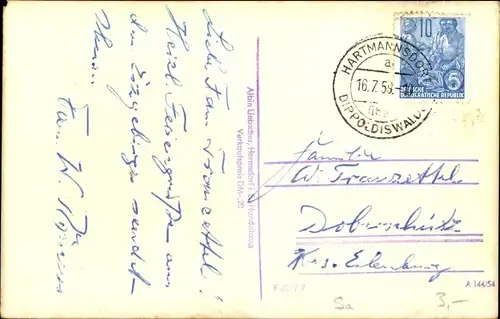 Liebe Fam. Franzettel!
Herzl. Feriengrüße aus
dem Erzgebirge sendet
Ihnen
Fam. W.
Albin Liebscher, Hermsdorf
Verkaufspreis DM -,20
HARTMANNSDORF
a
16.7.59.
über
DIPPOLDISWALDE
10
DEUTSCHE
DEMOKRATISCHE REPUBLIK
5
Familie
W. Franzettel
Doberschütz
Krs. Eilenburg
A 144/54
Sa
3,-